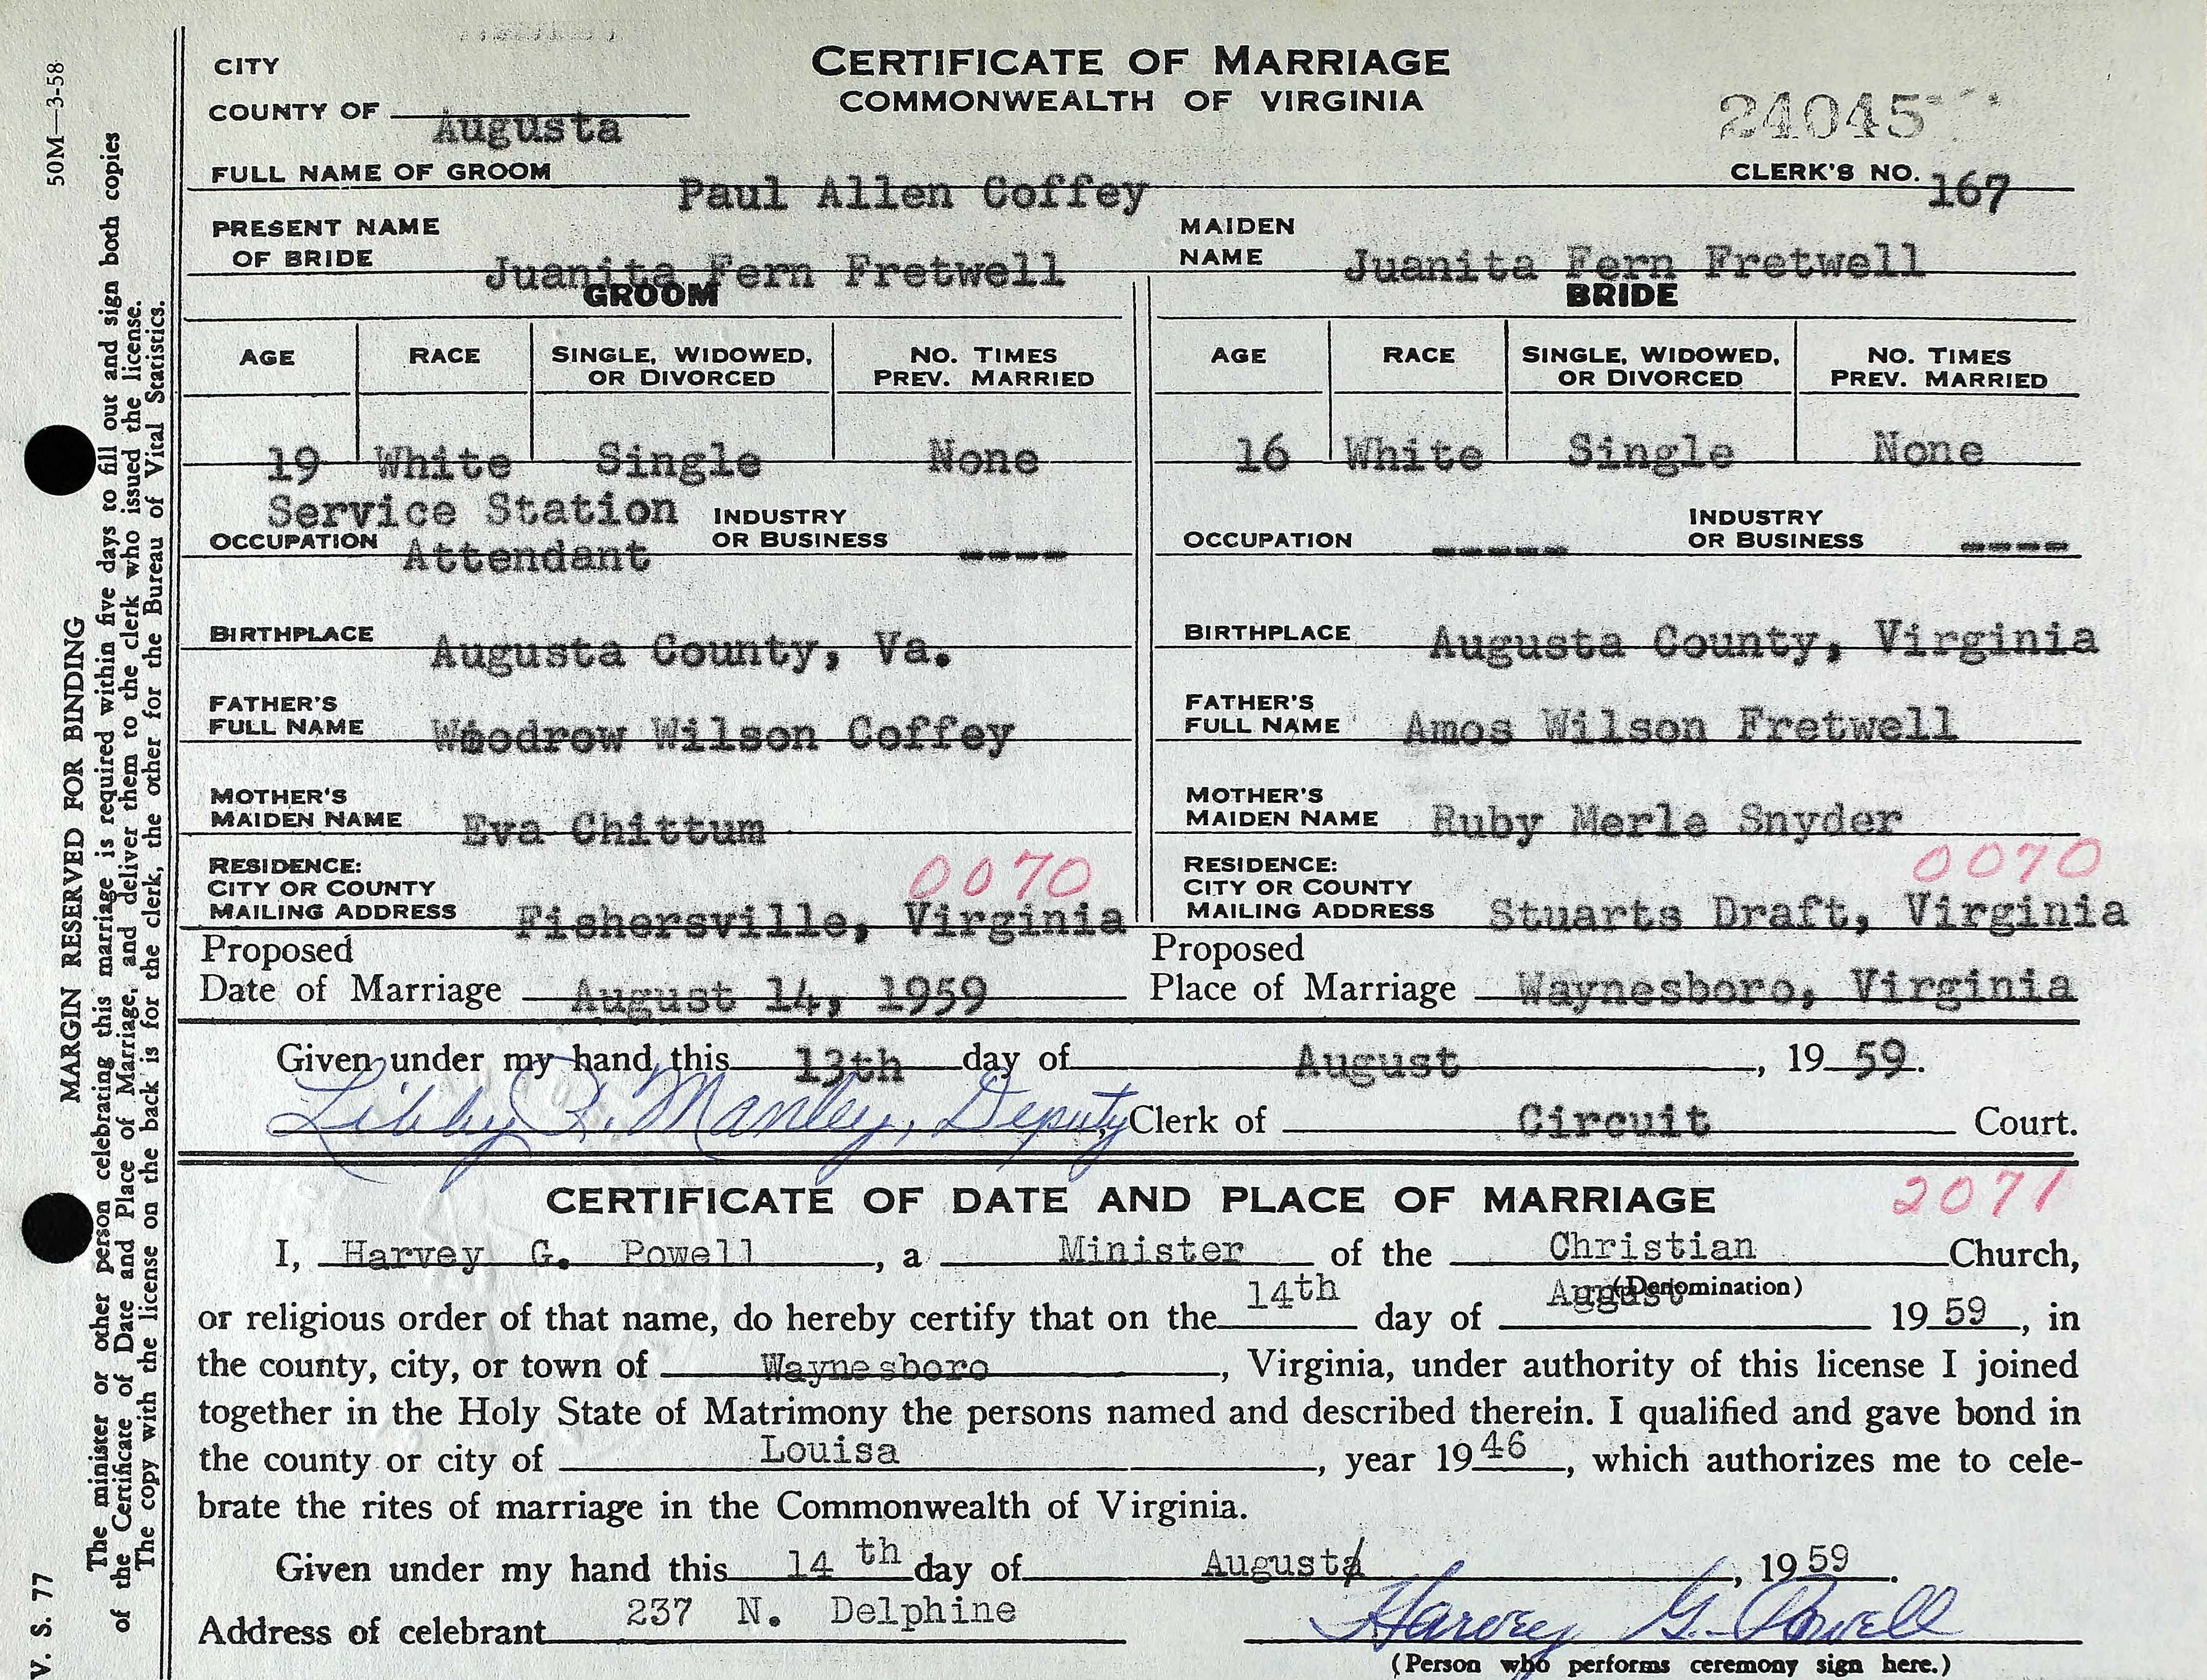 CERTIFICATE OF MARRIAGE
COMMONWEALTH OF VIRGINIA
CITY
COUNTY OF Augusta
24045
CLERK'S NO. 167
FULL NAME OF GROOM Paul Allen Coffey
PRESENT NAME OF BRIDE Juanita Fern Fretwell
MAIDEN NAME Juanita Fern Fretwell
GROOM
AGE RACE SINGLE, WIDOWED, OR DIVORCED NO. TIMES PREV. MARRIED
19 White Single None
OCCUPATION Service Station Attendant
INDUSTRY OR BUSINESS ----
BIRTHPLACE Augusta County, Va.
FATHER'S FULL NAME Woodrow Wilson Coffey
MOTHER'S MAIDEN NAME Eva Chittum
0070
RESIDENCE: CITY OR COUNTY MAILING ADDRESS Fishersville, Virginia
BRIDE
AGE RACE SINGLE, WIDOWED, OR DIVORCED NO. TIMES PREV. MARRIED
16 White Single None
OCCUPATION -----
INDUSTRY OR BUSINESS ----
BIRTHPLACE Augusta County, Virginia
FATHER'S FULL NAME Amos Wilson Fretwell
MOTHER'S MAIDEN NAME Ruby Merle Snyder
0070
RESIDENCE: CITY OR COUNTY MAILING ADDRESS Stuarts Draft, Virginia
Proposed Date of Marriage August 14, 1959
Proposed Place of Marriage Waynesboro, Virginia
Given under my hand this 13th day of August, 1959.
Libby R. Manley, Deputy, Clerk of Circuit Court.
CERTIFICATE OF DATE AND PLACE OF MARRIAGE 2071
I, Harvey G. Powell, a Minister of the Christian Church,
(Denomination)
or religious order of that name, do hereby certify that on the 14th day of August 1959, in
the county, city, or town of Waynesboro, Virginia, under authority of this license I joined
together in the Holy State of Matrimony the persons named and described therein. I qualified and gave bond in
the county or city of Louisa, year 1946, which authorizes me to cele-
brate the rites of marriage in the Commonwealth of Virginia.
Given under my hand this 14th day of August, 1959.
Address of celebrant 237 N. Delphine
Harvey G. Powell
(Person who performs ceremony sign here.)
V. S. 77
50M—3-58
MARGIN RESERVED FOR BINDING
The minister or other person celebrating this marriage is required within five days to fill out and sign both copies
of the Certificate of Date and Place of Marriage, and deliver them to the clerk who issued the license.
The copy with the license on the back is for the clerk, the other for the Bureau of Vital Statistics.